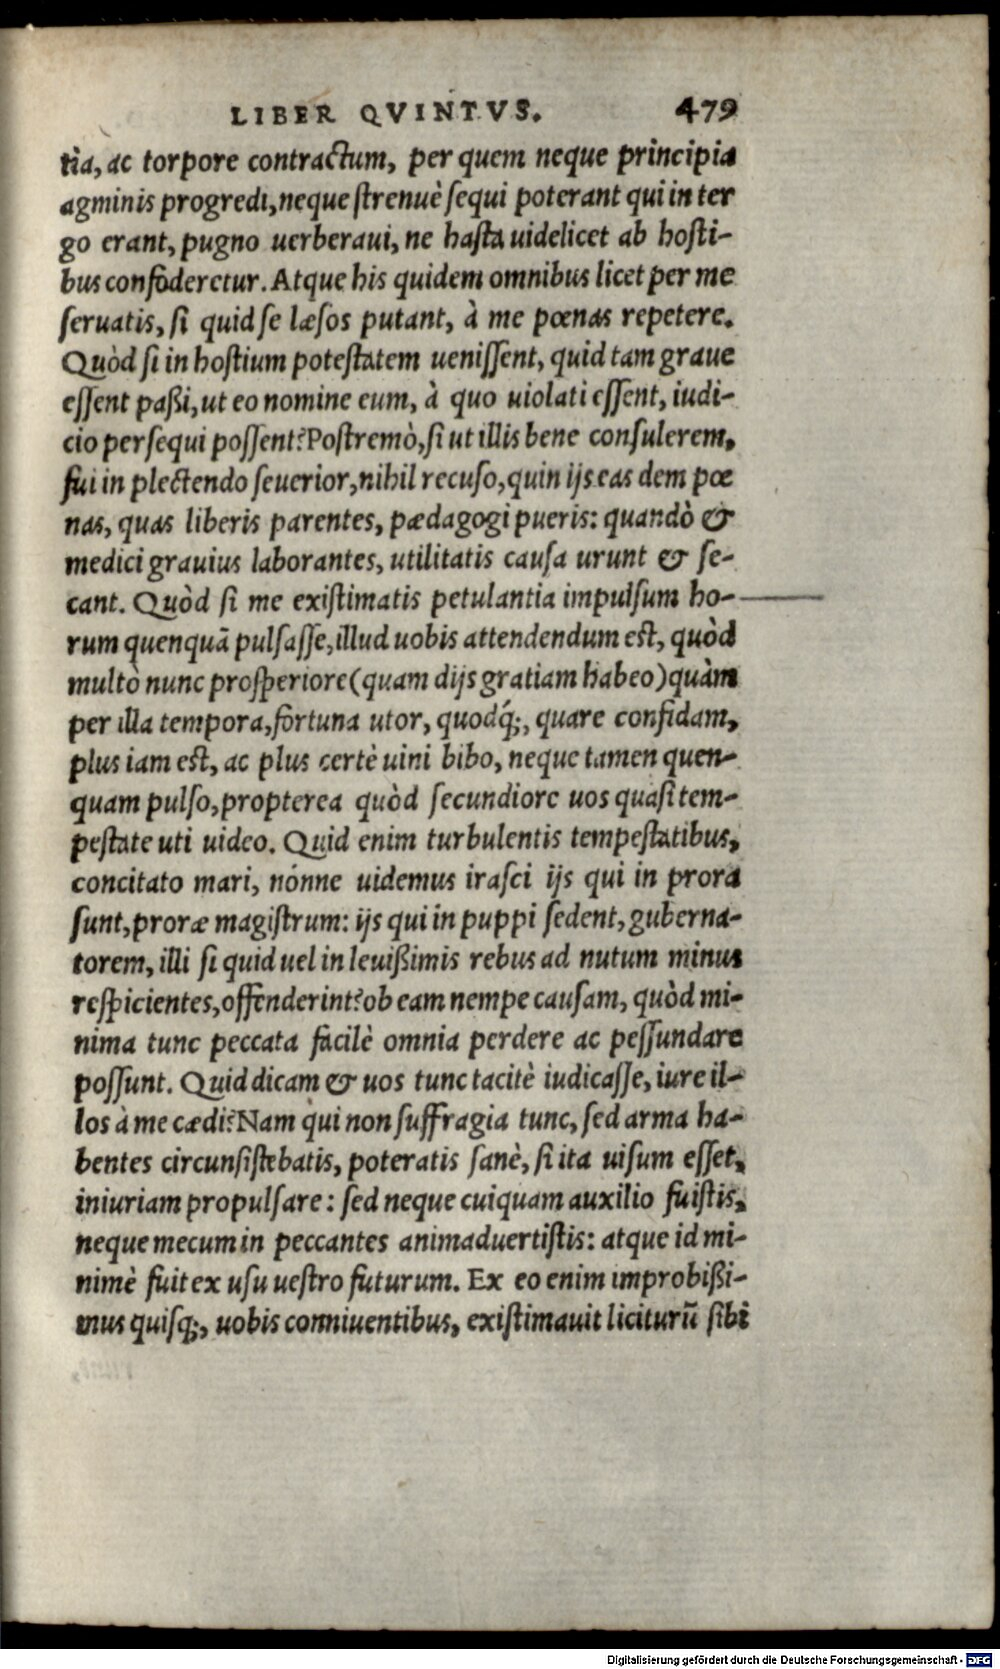 LIBER QVINTVS. 479
tia, ac torpore contractum, per quem neque principia
agminis progredi, neque strenuè sequi poterant qui in ter
go erant, pugno uerberaui, ne hasta uidelicet ab hosti-
bus confoderetur. Atque his quidem omnibus licet per me
seruatis, si quid se læsos putant, à me pœnas repetere.
Quòd si in hostium potestatem uenissent, quid tam graue
essent paßi, ut eo nomine eum, à quo uiolati essent, iudi-
cio persequi possent? Postremò, si ut illis bene consulerem,
fui in plectendo seuerior, nihil recuso, quin ijs eas dem pœ
nas, quas liberis parentes, pædagogi pueris: quandò &
medici grauius laborantes, utilitatis causa urunt & se-
cant. Quòd si me existimatis petulantia impulsum ho-
rum quenquã pulsasse, illud uobis attendendum est, quòd
multò nunc prosperiore (quam dijs gratiam habeo) quàm
per illa tempora, fortuna utor, quodq́;, quare confidam,
plus iam est, ac plus certè uini bibo, neque tamen quen-
quam pulso, propterea quòd secundiore uos quasi tem-
pestate uti uideo. Quid enim turbulentis tempestatibus,
concitato mari, nónne uidemus irasci ijs qui in prora
sunt, proræ magistrum: ijs qui in puppi sedent, guberna-
torem, illi si quid uel in leuißimis rebus ad nutum minus
respicientes, offenderint? ob eam nempe causam, quòd mi-
nima tunc peccata facilè omnia perdere ac pessundare
possunt. Quid dicam & uos tunc tacitè iudicasse, iure il-
los à me cædi? Nam qui non suffragia tunc, sed arma ha-
bentes circunsistebatis, poteratis sanè, si ita uisum esset,
iniuriam propulsare: sed neque cuiquam auxilio fuistis,
neque mecum in peccantes animaduertistis: atque id mi-
nimè fuit ex usu uestro futurum. Ex eo enim improbißi-
mus quisq;, uobis conniuentibus, existimauit liciturũ sibi
Digitalisierung gefördert durch die Deutsche Forschungsgemeinschaft - DFG